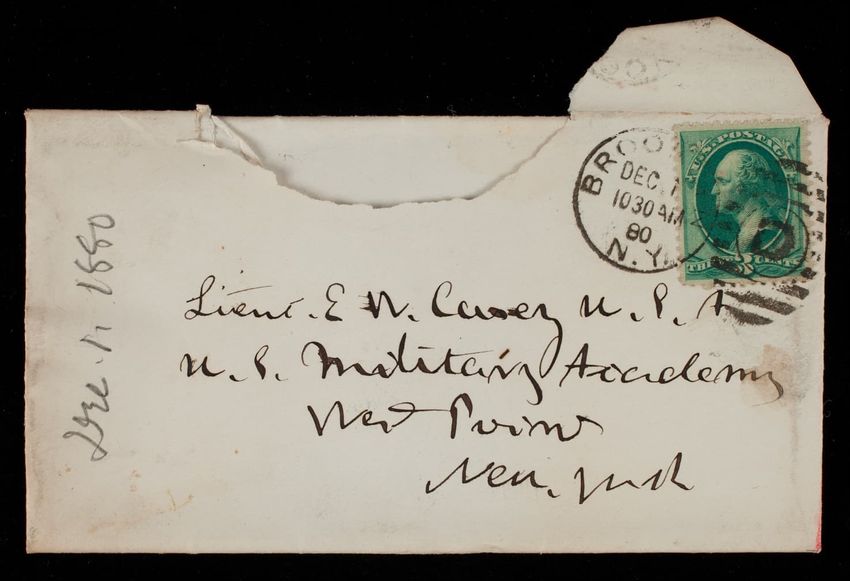 BROO
DEC. 1
10 30 AM
80
N.Y.
U.S. POSTAGE
THREE CENTS
2
Lieut. E W. Casey U. S. A
U. S. Military Academy
West Point
New York
Dec. 1. 1880